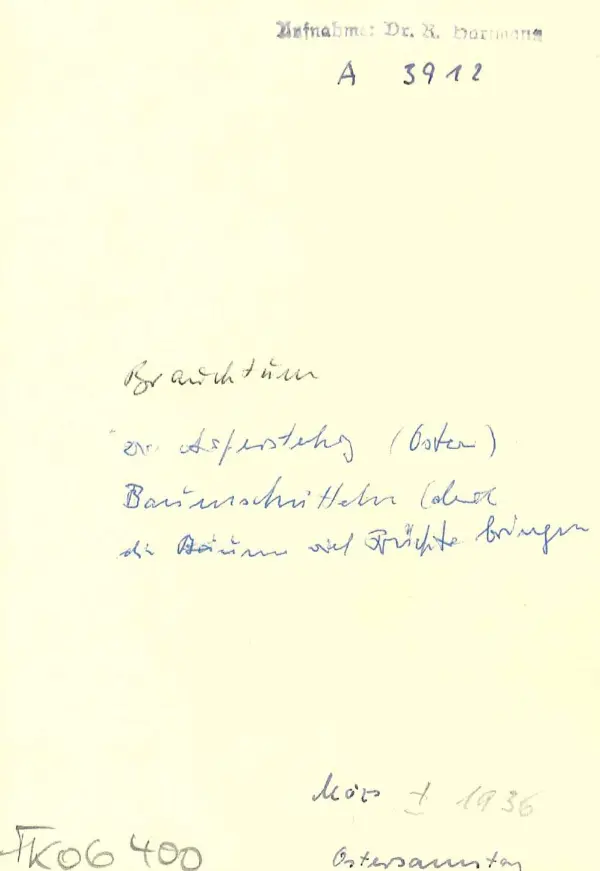 Aufnahme: Dr. R. Hartmann
A 3912
Brauchtum
zur Auferstehg (Ostern)
Baumschütteln (damit
die Bäume viel Früchte bringen
März 1936
TK06 400
Ostersamstag